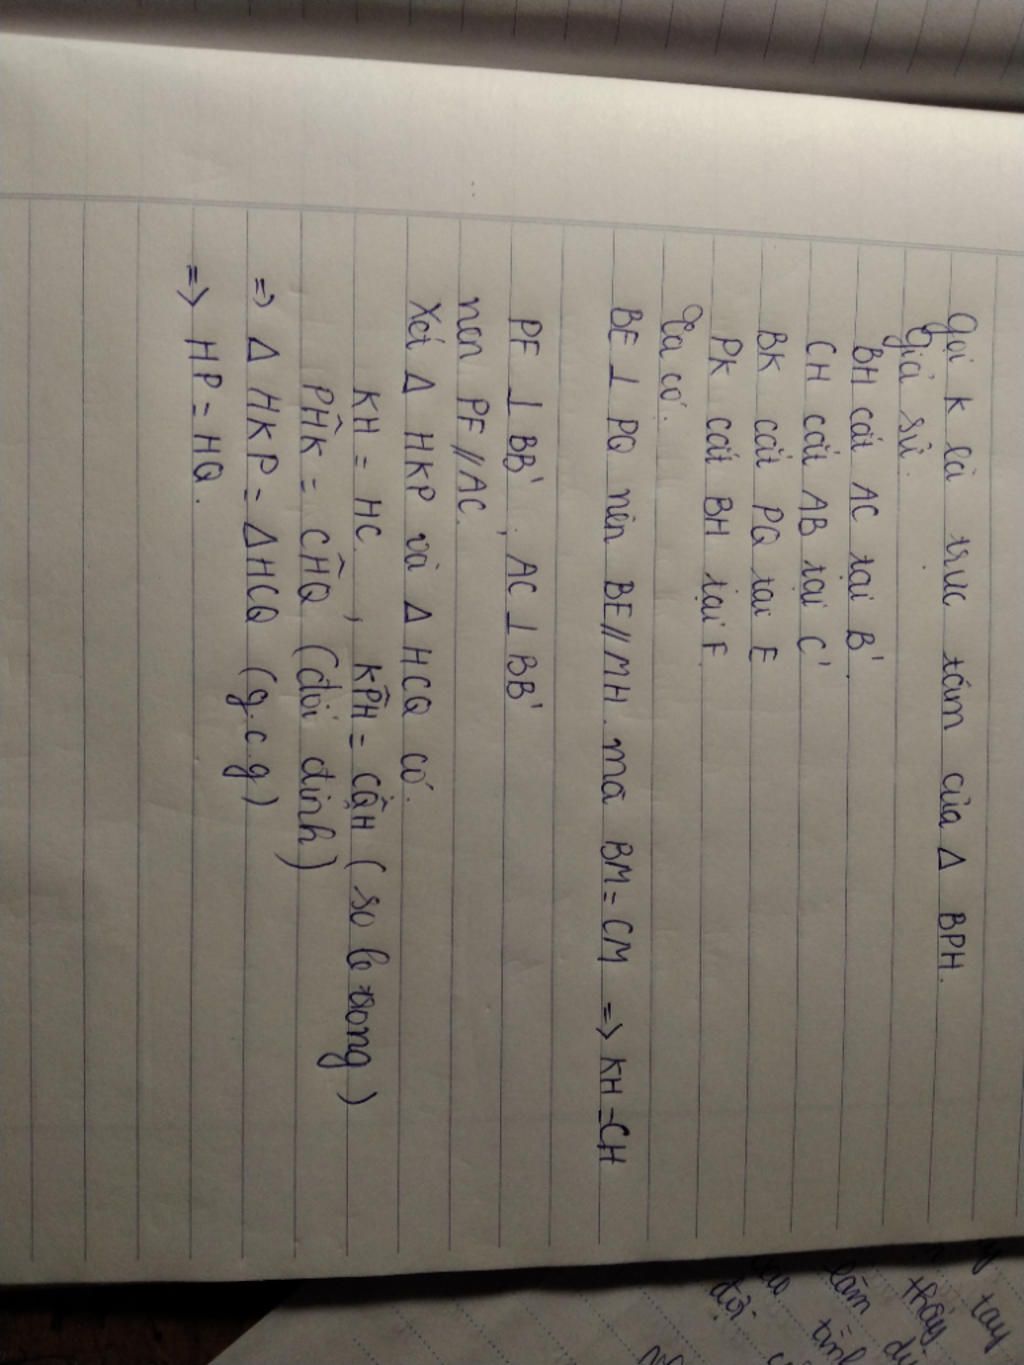 Gọi K là trực tâm của Δ BPH.
Giả sử:
BH cắt AC tại B'
CH cắt AB tại C'
BK cắt PQ tại E
PK cắt BH tại F
Ta có:
BE ⊥ PQ nên BE // MH. mà BM = CM => KH = CH
PF ⊥ BB', AC ⊥ BB'
nên PF // AC.
Xét Δ HKP và Δ HCQ có:
KH = HC, KP̂H = CQ̂H ( so le trong )
PĤK = CĤQ (đối đỉnh)
=> Δ HKP = ΔHCQ (g.c.g)
=> HP = HQ.
tay
thầy
làm
tìn
đời